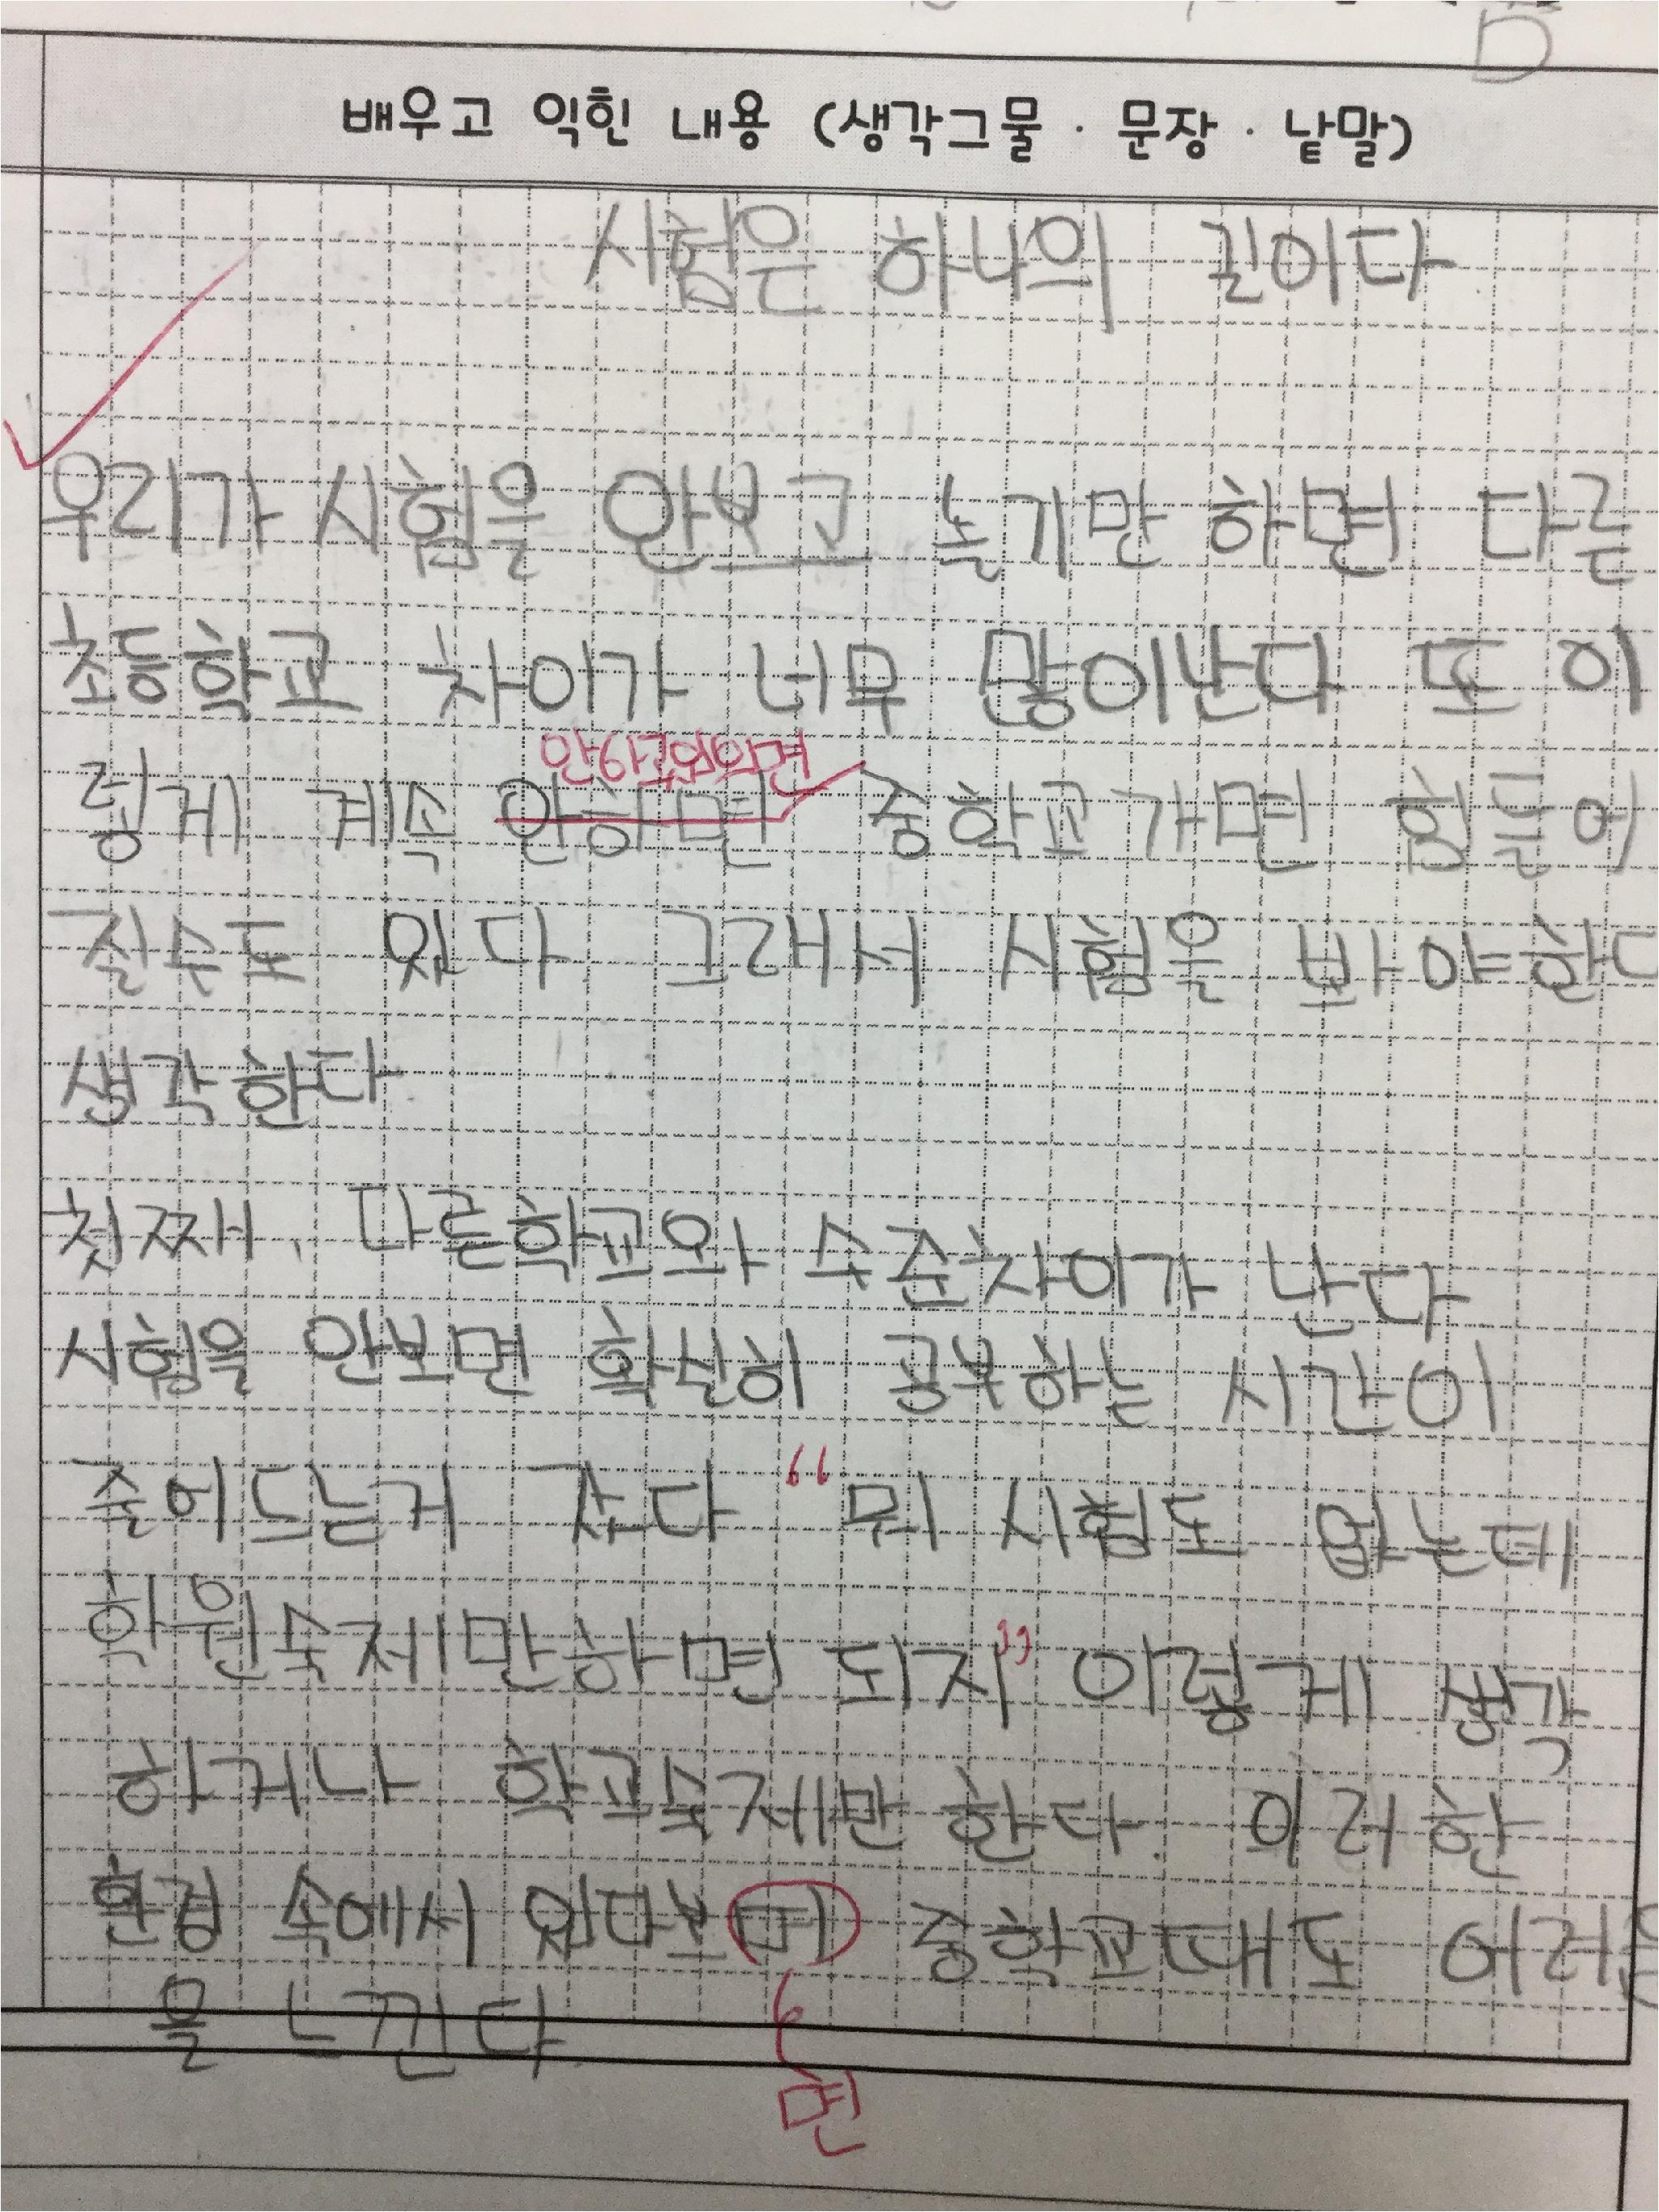 배우고 익힌 내용 (생각그물 · 문장 · 낱말)
시험은 하나의 길이다
우리가 시험을 안보고 놀기만 하면 다른
초등학교 차이가 너무 많이난다 또 이
렇게 계속 안하면 중학교 가면 힘들어
질수도 있다 그래서 시험을 봐야한다
생각한다
첫째, 다른학교와 수준차이가 난다
시험을 안보면 확실히 공부하는 시간이
줄어드는거 같다 “뭐 시험도 없는데
학원숙제만하면 되지” 이렇게 생각
하거나 학교숙제만 한다. 이러한
환경 속에서 있다보며 중학교때도 어려움
을 느낀다
면